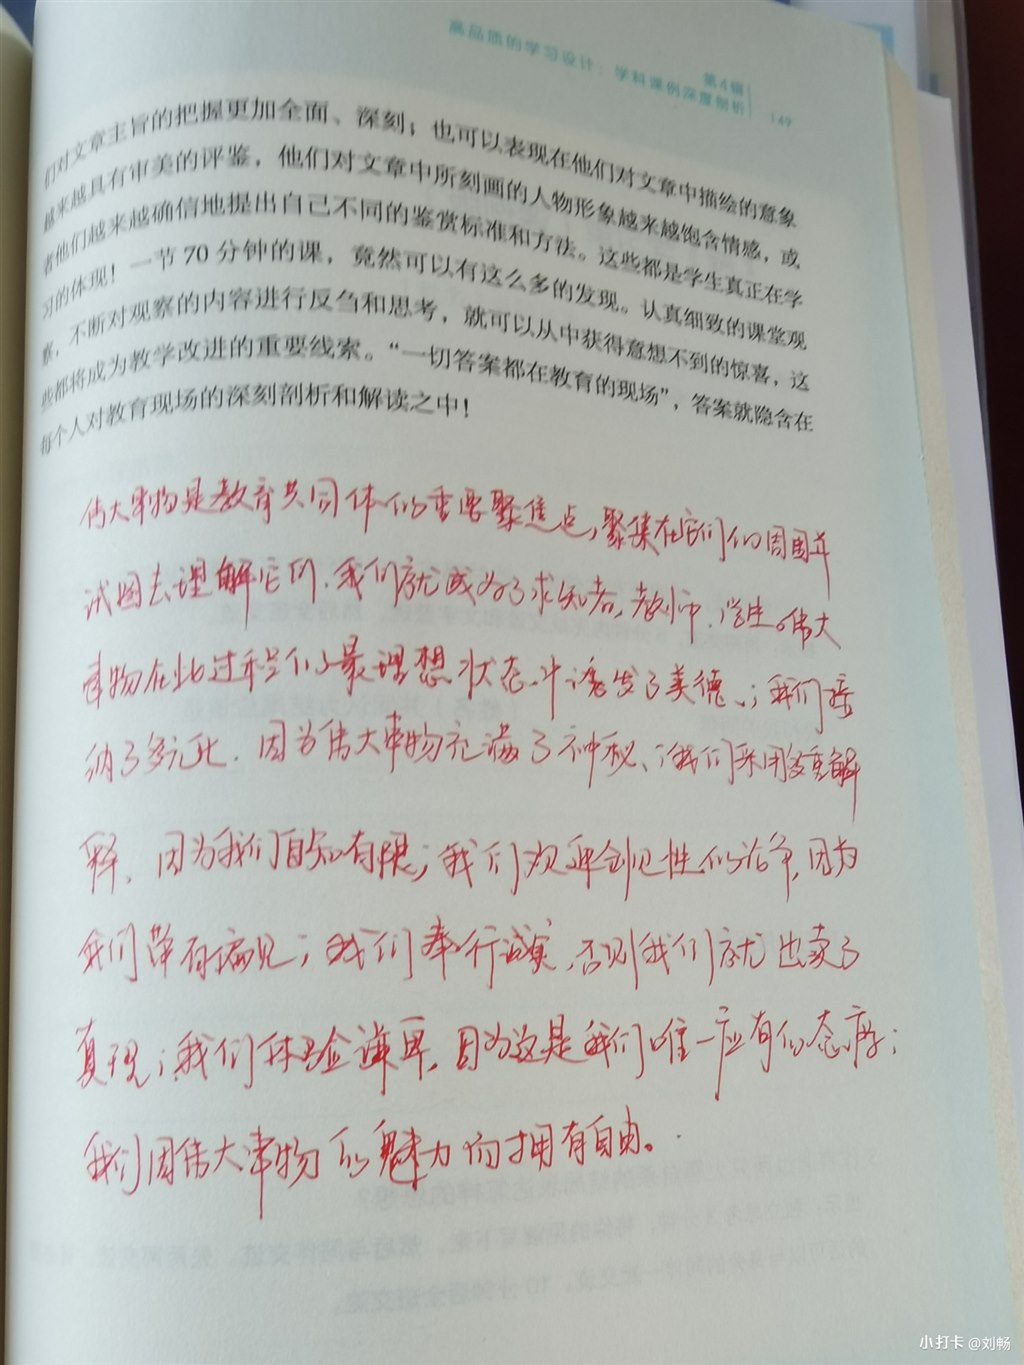 第4辑
高品质的学习设计：学科课例深度剖析
149
们对文章主旨的把握更加全面、深刻；也可以表现在他们对文章中描绘的意象
越来越具有审美的评鉴，他们对文章中所刻画的人物形象越来越饱含情感，或
者他们越来越确信地提出自己不同的鉴赏标准和方法。这些都是学生真正在学
习的体现！一节70分钟的课，竟然可以有这么多的发现。认真细致的课堂观
察，不断对观察的内容进行反刍和思考，就可以从中获得意想不到的惊喜，这
些都将成为教学改进的重要线索。“一切答案都在教育的现场”，答案就隐含在
每个人对教育现场的深刻剖析和解读之中！
伟大事物是教育共同体的重要聚焦点，聚集在它们的周围并
试图去理解它们，我们就成为了求知者，教师、学生。伟大
事物在此过程的最理想状态中诱发了美德：我们接
纳了多元化，因为伟大事物充满了神秘；我们采用多重解
释，因为我们自知有限；我们欢迎创见性的论争，因为
我们带有偏见；我们奉行诚实，否则我们就出卖了
真理；我们体会谦卑，因为这是我们唯一应有的态度；
我们因伟大事物的魅力而拥有自由。
小打卡 @刘畅